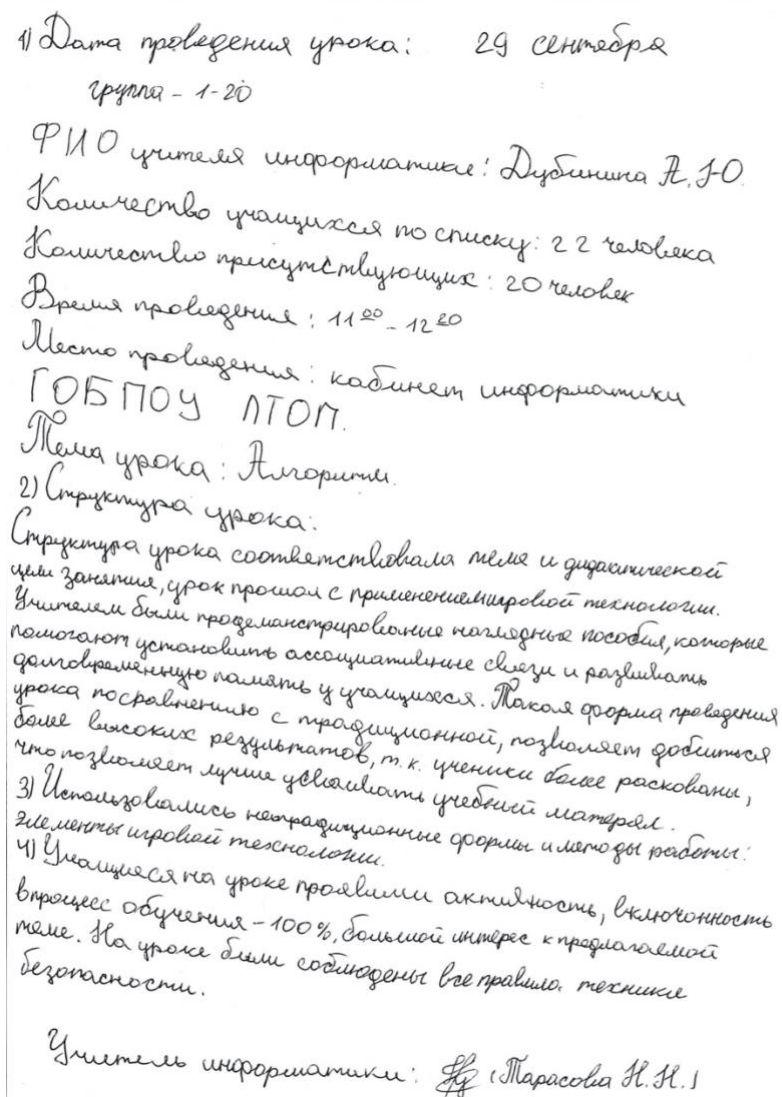 1) Дата проведения урока: 29 сентября
группа - 1-20
ФИО учителя информатики: Дубинина А.Ю.
Количество учащихся по списку: 22 человека
Количество присутствующих: 20 человек
Время проведения: 11 00 - 12 20
Место проведения: кабинет информатики
ГОБПОУ ЛТОП.
Тема урока: Алгоритм.
2) Структура урока:
Структура урока соответствовала теме и дидактической
цели занятия, урок прошол с применением игровой технологии.
Учителем были продеманстрированые наглядные пособия, которые
помогают установить ассоциативные связи и развивать
долговременную память у учащихся. Такая форма проведения
урока посравнению с традиционной, позволяет добиться
более высоких результатов, т.к. ученики более раскованы,
что позволяет лучше усваивать учебный матерял.
3) Использовались нетрадиционные формы и методы работы:
элементы игровой технологии.
4) Учащиеся на уроке проявили активность, включонность
в процесс обучения - 100%, большой интерес к предлагаемой
теме. На уроке были соблюдены все правила техники
безопасности.
Учитель информатики: (Тарасова Н.Н.)